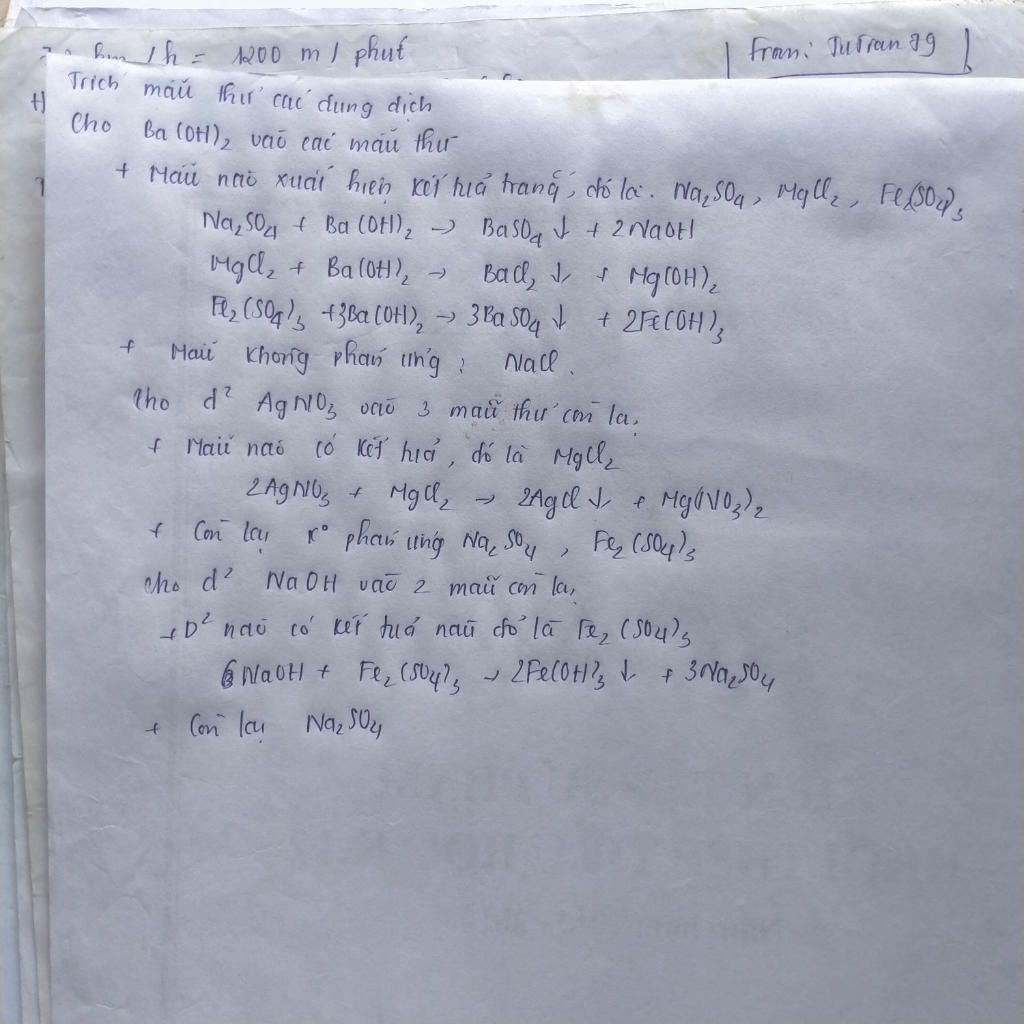 km / h = 1200 m / phút
From: TuTran 79
Trích mẫu thử các dung dịch
Cho Ba(OH)₂ vào các mẫu thử
+ Mẫu nào xuất hiện kết tủa trắng, đó là. Na₂SO₄, MgCl₂, Fe₂(SO₄)₃
Na₂SO₄ + Ba(OH)₂ → BaSO₄ ↓ + 2NaOH
MgCl₂ + Ba(OH)₂ → BaCl₂ ↓ + Mg(OH)₂
Fe₂(SO₄)₃ + 3Ba(OH)₂ → 3BaSO₄ ↓ + 2Fe(OH)₃
+ Mẫu không phản ứng : NaCl.
Cho d² AgNO₃ vào 3 mẫu thử còn lại
+ Mẫu nào có kết tủa, đó là MgCl₂
2AgNO₃ + MgCl₂ → 2AgCl ↓ + Mg(NO₃)₂
+ Còn lại k° phản ứng Na₂SO₄, Fe₂(SO₄)₃
Cho d² NaOH vào 2 mẫu còn lại
+ D² nào có kết tủa nâu đỏ là Fe₂(SO₄)₃
6NaOH + Fe₂(SO₄)₃ → 2Fe(OH)₃ ↓ + 3Na₂SO₄
+ Còn lại Na₂SO₄